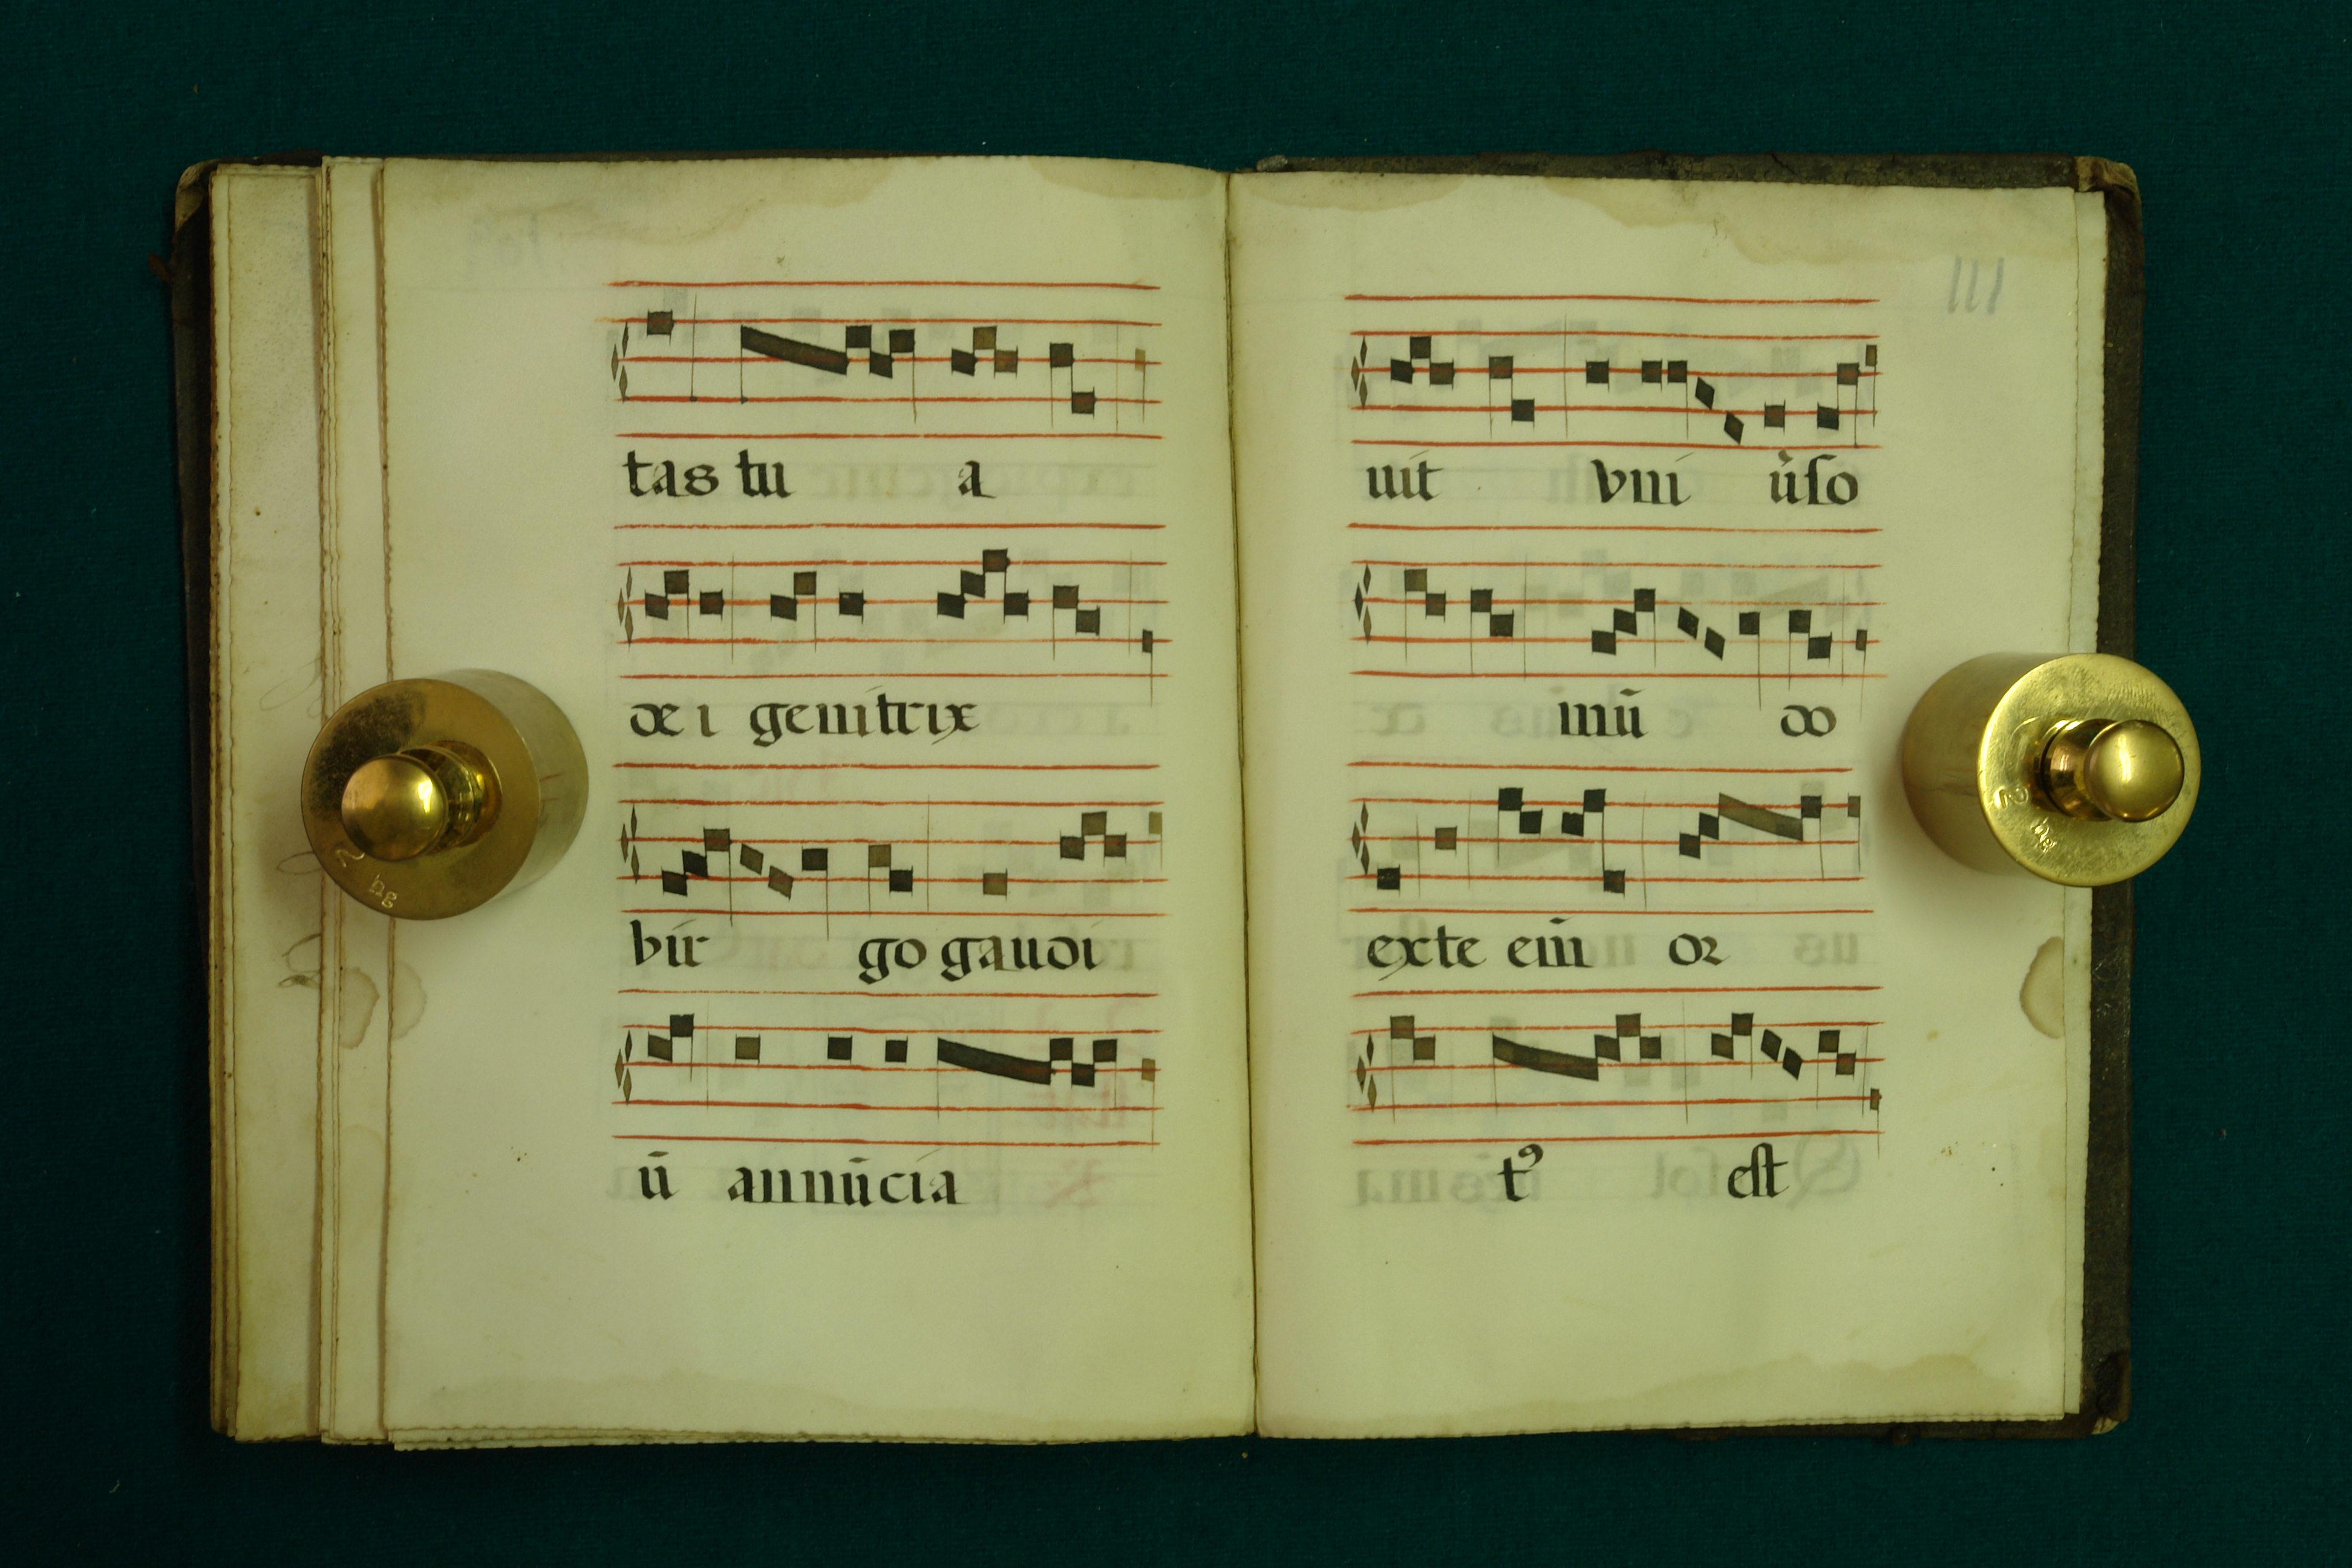 tas tu a
dei genitrix
vir go gaudi
ū annūcia
111
uit vni ũſo
mū do
exte eīn or
tꝰ eſt
2 kg
2 kg